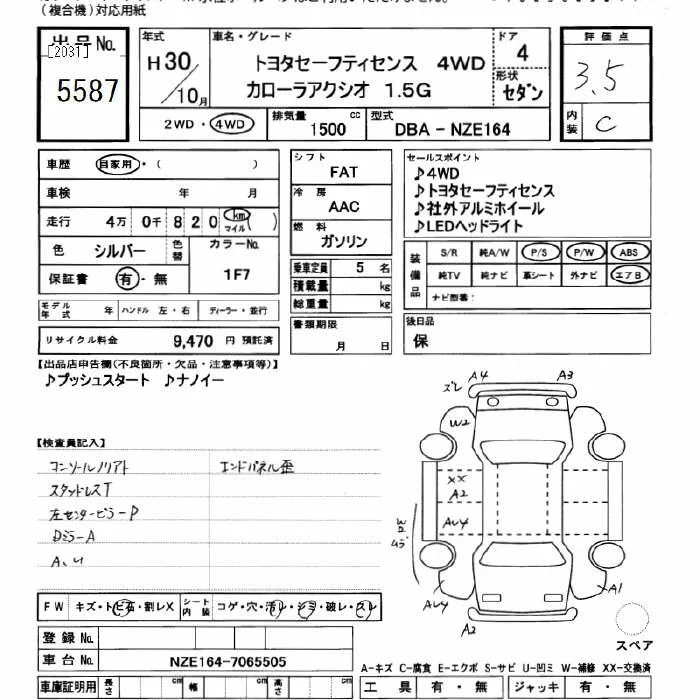 (複合機)対応用紙
出品No.
[203T]
5587
年式
H30/10月
車名・グレード
トヨタセーフティセンス 4WD
カローラアクシオ 1.5G
ドア
4
形状
セダン
評価点
3.5
内装
C
2WD・4WD
排気量
1500 cc
型式
DBA - NZE164
車歴 自家用・( )
車検 年 月
走行 4万 0千 8 2 0 km マイル ( )
色 シルバー 色替
カラーNo.
1F7
保証書 有・無
モデル年式 年 ハンドル 左・右 ディーラー・並行
リサイクル料金 9,470 円 預託済
シフト
FAT
冷房
AAC
燃料
ガソリン
乗車定員 5 名
積載量 kg
総重量 kg
書類期限
月 日
セールスポイント
♪4WD
♪トヨタセーフティセンス
♪社外アルミホイール
♪LEDヘッドライト
装備品
S/R 純A/W P/S P/W ABS
純TV 純ナビ 革シート 外ナビ エアB
ナビ型番:
後日品
保
【出品店申告欄(不良箇所・欠品・注意事項等)】
♪プッシュスタート ♪ナノイー
【検査員記入】
コンソールノリアト エンドパネル歪
スタッドレスT
左センターピラーP
DミラーA
A、U
FW キズ・トビ石・割レX
シート内装 コゲ・穴・汚レ・シミ・破レ・スレ
登録No.
車台No. NZE164-7065505
車庫証明用 長さ cm 幅 cm 高さ cm
ズレ A4 A3
W2
XX
A2
AU4
AU4
A2
A1
スペア
A-キズ C-腐食 E-エクボ S-サビ U-凹ミ W-補修 XX-交換済
工具 有・無 ジャッキ 有・無